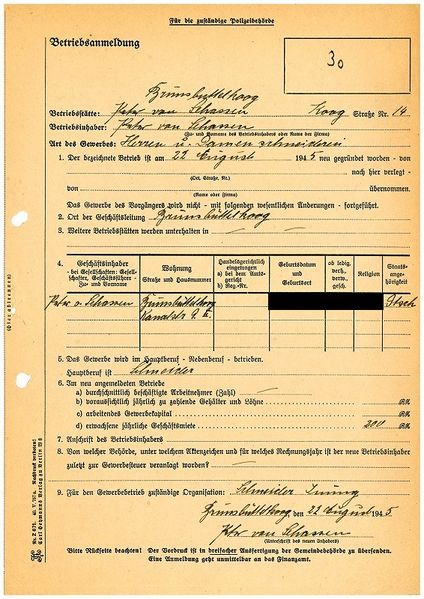 Für die zuständige Polizeibehörde
Betriebsanmeldung
30
Brunsbüttelkoog
Betriebsstätte: Peter von Schassen Koog Straße Nr. 14
Betriebsinhaber: Peter von Schassen
(Zu- und Vorname des Betriebsinhabers oder Name der Firma)
Art des Gewerbes: Herren u. Damenschneiderei
1. Der bezeichnete Betrieb ist am 22 August 1945 neu gegründet worden - von
nach hier verlegt -
(Ort, Straße, Nr.)
von übernommen.
(Name oder Firma)
Das Gewerbe des Vorgängers wird nicht - mit folgenden wesentlichen Änderungen - fortgeführt.
2. Ort der Geschäftsleitung Brunsbüttelkoog
3. Weitere Betriebsstätten werden unterhalten in —
4. Geschäftsinhaber
- bei Gesellschaften: Gesellschafter, Geschäftsführer -
Zu- und Vorname
Wohnung
Straße und Hausnummer
Handelsgerichtlich eingetragen
a) bei dem Amtsgericht
b) Reg.-Nr.
Geburtsdatum und Geburtsort
ob ledig, verh., verw., gesch.
Religion
Staatsangehörigkeit
Peter v. Schassen Brunsbüttelkoog Dtsch
5. Das Gewerbe wird im Hauptberuf - Nebenberuf - betrieben.
Hauptberuf ist Schneider
6. Im neu angemeldeten Betriebe
a) durchschnittlich beschäftigte Arbeitnehmer (Zahl) —
b) voraussichtlich jährlich zu zahlende Gehälter und Löhne RM
c) arbeitendes Gewerbekapital RM
d) erwachsene jährliche Geschäftsmiete 200 RM
7. Anschrift des Betriebsinhabers
8. Von welcher Behörde, unter welchem Aktenzeichen und für welches Rechnungsjahr ist der neue Betriebsinhaber
zuletzt zur Gewerbesteuer veranlagt worden? —
9. Für den Gewerbebetrieb zuständige Organisation: Schneider Innung
Brunsbüttelkoog den 22 August 1945
Peter von Schassen
(Unterschrift des neuen Inhabers)
Bitte Rückseite beachten! Der Vordruck ist in dreifacher Ausfertigung der Gemeindebehörde zu übersenden.
Eine Abmeldung geht unmittelbar an das Finanzamt.